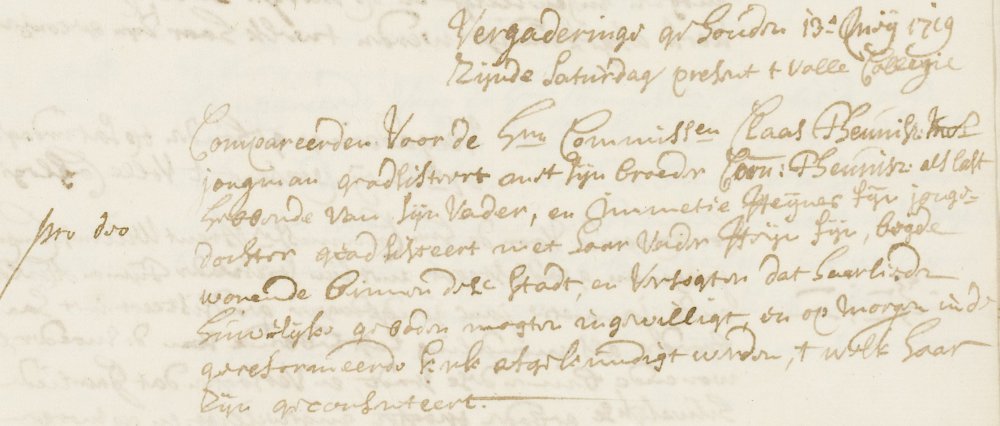 Vergaderinge gehouden 13e Meij 1719
Zijnde Saturdag present t volle Collegie
Compareerden Voor de Hrn Commissen Claas Theunisz: Mol
jongman geadsisteert met sijn broeder Corn: Theunisz: als last
hebbende van sijn Vader, en Jmmetie Heijnes Fijn jonge-
pro deo
dochter geadsisteert met haar Vader Heijn Fijn, beijde
wonende binnen dese Stadt, en Versogten dat haarlieder
huwelijks geboden mogten ingewilligt, en op Morgen in de
gereformeerde kerk afgekundigt werden, t welk haar
zijn geconsenteert.